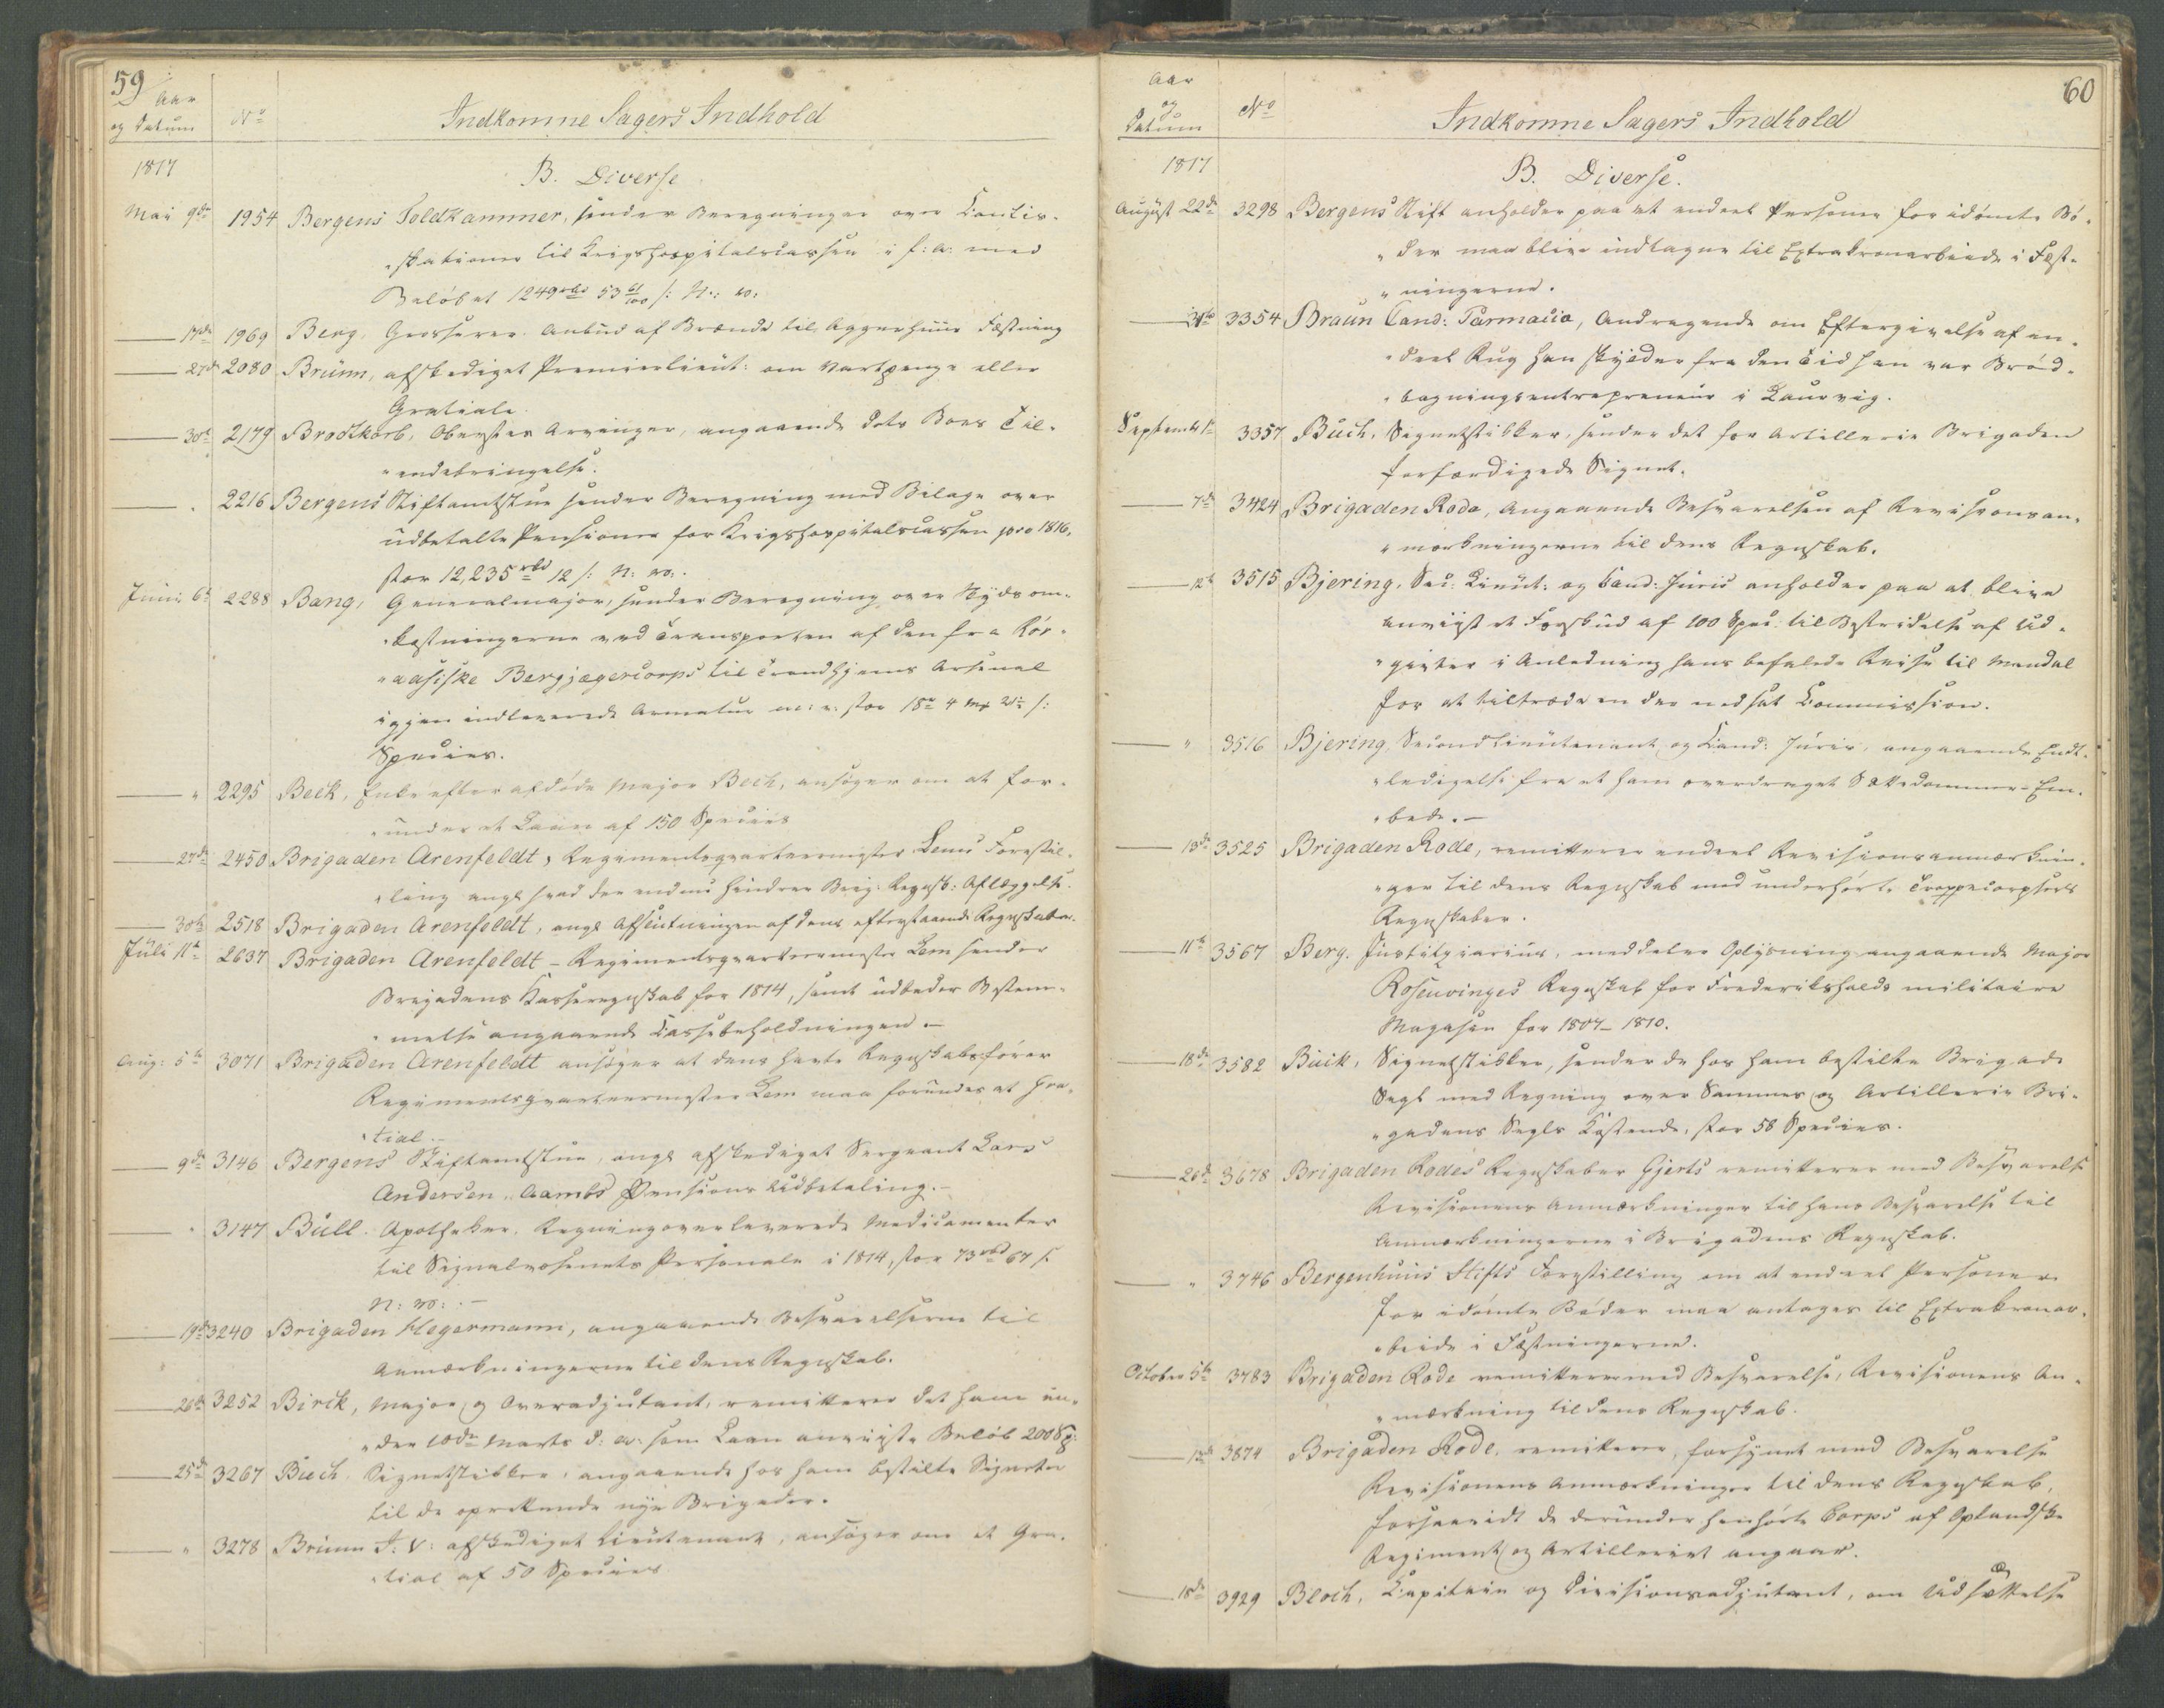 59
Aar
og Datum
No
Indkomne Sagers Indhold
1817
B. Diverse
Mai 9de 1954 Bergens Toldkammer, sender Beregninger over Confis-
"skationer til Krigshospitalscassen i f: a: med
Beløbet 1249 rbd 53 61/100 s: N: v:
17de 1969 Berg, Grosserer. Anbud af Brænde til Aggerhuus Fæstning
27de 2080 Brünn, afskediget Premierlieut: om Vartpenge eller
Gratiale.
30te 2179 Brodtkorb, Oberster Arvinger, angaaende dets Boes Til-
"endebringelse.
" 2216 Bergens Stiftamtstue sender Beregning med Bilage over
udbetalte Pensioner for Krigshospitalscassen pro 1816,
stor 12,235 rbd 12 s: N: v:.
Juni 6te 2288 Bang, Generalmajor, sender Beregning over Skydsom-
"kostningerne ved Transporten af den fra Rør-
"aasiske Bergjægercorps til Trondhjems Arsenal
igjen indleverede Armatur m: v: stor 18 4 s:
Species.
" 2295 Beck, Enke efter afdøde Major Bech, ansøger om at for-
"undes et Laan af 150 Species
27de 2450 Brigaden Arenfeldt, Regimentsqvarteermester Lems Forestil-
"ling angl hvad der endnu hindrer Brig: Regnsk: Aflæggelse.
30te 2518 Brigaden Arenfeldt, angl Afslutningen af dens efterstaaende Regnskaber.
Juli 11te 2637 Brigaden Arenfeldt - Regimentsqvarteermester Lem sender
Brigadens Kasseregnskab for 1814, samt udbeder Bestem-
"melse angaaende Cassebeholdningen.-
Aug: 5te 3071 Brigaden Arenfeldt ansøger at dens havte Regnskabsfører
Regimentsqvarteermester Lem maa forundes et Gra-
"tial.-
9de 3146 Bergens Stiftamtstue, angl afskediget Sergeant Lars
Andersen Aambs Pensions Udbetaling.-
" 3147 Bull. Apotheker, Regning over leverede Medicamenter
til Signalvæsenets Personale i 1814, stor 73 rbd 67 s.
N: v: .-
19de 3240 Brigaden Hegermann, angaaende Besvarelserne til
Anmærkningerne til dens Regnskab.
20de 3252 Birck, Major og Overadjutant, remitterer det ham un-
"der 10de Marts d: A: som Laan anviiste Beløb 200 Sp:
25de 3267 Buch Signetstikker, angaaende hos ham bestilte Signeter
til de oprettende nye Brigader.
" 3278 Brünn J: V: afskediget Lieutenant, ansøger om et Gra-
"tial af 50 Species
60
Aar
og
Datum
No
Indkomne Sagers Indhold
1817
B. Diverse.
August 22de 3298 Bergens Stift anholder paa at endeel Personer for idømte Bø-
"der maa blive indtagne til Extrakronarbeide i Fæst-
"ningerne.
31te 3354 Braun Cand: Farmacia, Andragende om Eftergivelse af en-
"deel Rug han skylder fra den Tid han var Brød-
"bagningsentrepreneur i Laurvig.
Septemb 1te 3357 Buch, Signetstikker, sender det for Artillerie Brigaden
forfærdigede Signet.
7de 3424 Brigaden Rode, angaaende Besvarelsen af Revisionsan-
"mærkningerne til dens Regnskab.
12te 3515 Bjering, Sec: Lieut: og Cand: Juris anholder paa at blive
anviist et Forskud af 100 Spec: til Bestridelse af Ud-
"givter i Anledning hans befalede Reise til Mandal
for at tiltræde en der nedsat Commission.
" 3516 Bjering, Secondlieutenant og Cand: Juris, angaaende Endt-
"ledigelse fra et ham overdraget Sættedommer-Em-
"bede.-
13de 3525 Brigaden Rode, remitterer endeel Revisionsanmærknin-
"ger til dens Regnskab med underhørte Troppecorpsers
Regnskaber.
11te 3567 Berg. Justitiarius, meddeler Oplysning angaaende Major
Rosenvinges Regnskab for Frederikshalds militaire
Magasin for 1807-1810.
18de 3582 Buck, Signetstikker, sender de hos ham bestilte Brigade
Segl med Regning over Sammes og Artillerie Bri-
"gadens Segls Kostende, stor 58 Species.
26de 3678 Brigaden Rodes Regnskaber Gjerts remitterer med Besvarelse
Revisionens Anmærkninger til hans Besvarelse til
Anmærkningerne i Brigadens Regnskab.
" 3746 Bergenhuus Stifts Forestilling om at endeel Personer
for idømte Bøder maa antages til Extrakronar-
"beide i Fæstningerne.
October 5te 3783 Brigaden Rode remitterer med Besvarelse, Revisionens An-
"mærkning til dens Regnskab.
12de 3874 Brigaden Rode, remitterer, forsynet med Besvarelse
Revisionens Anmærkninger til dens Regnskab,
forsaavidt de derunder henhørte Corps af Oplandske
Regiment og Artilleriet angaar.
18de 3929 Bloch, Capitain og Divisionsadjutant, om Udsættelse